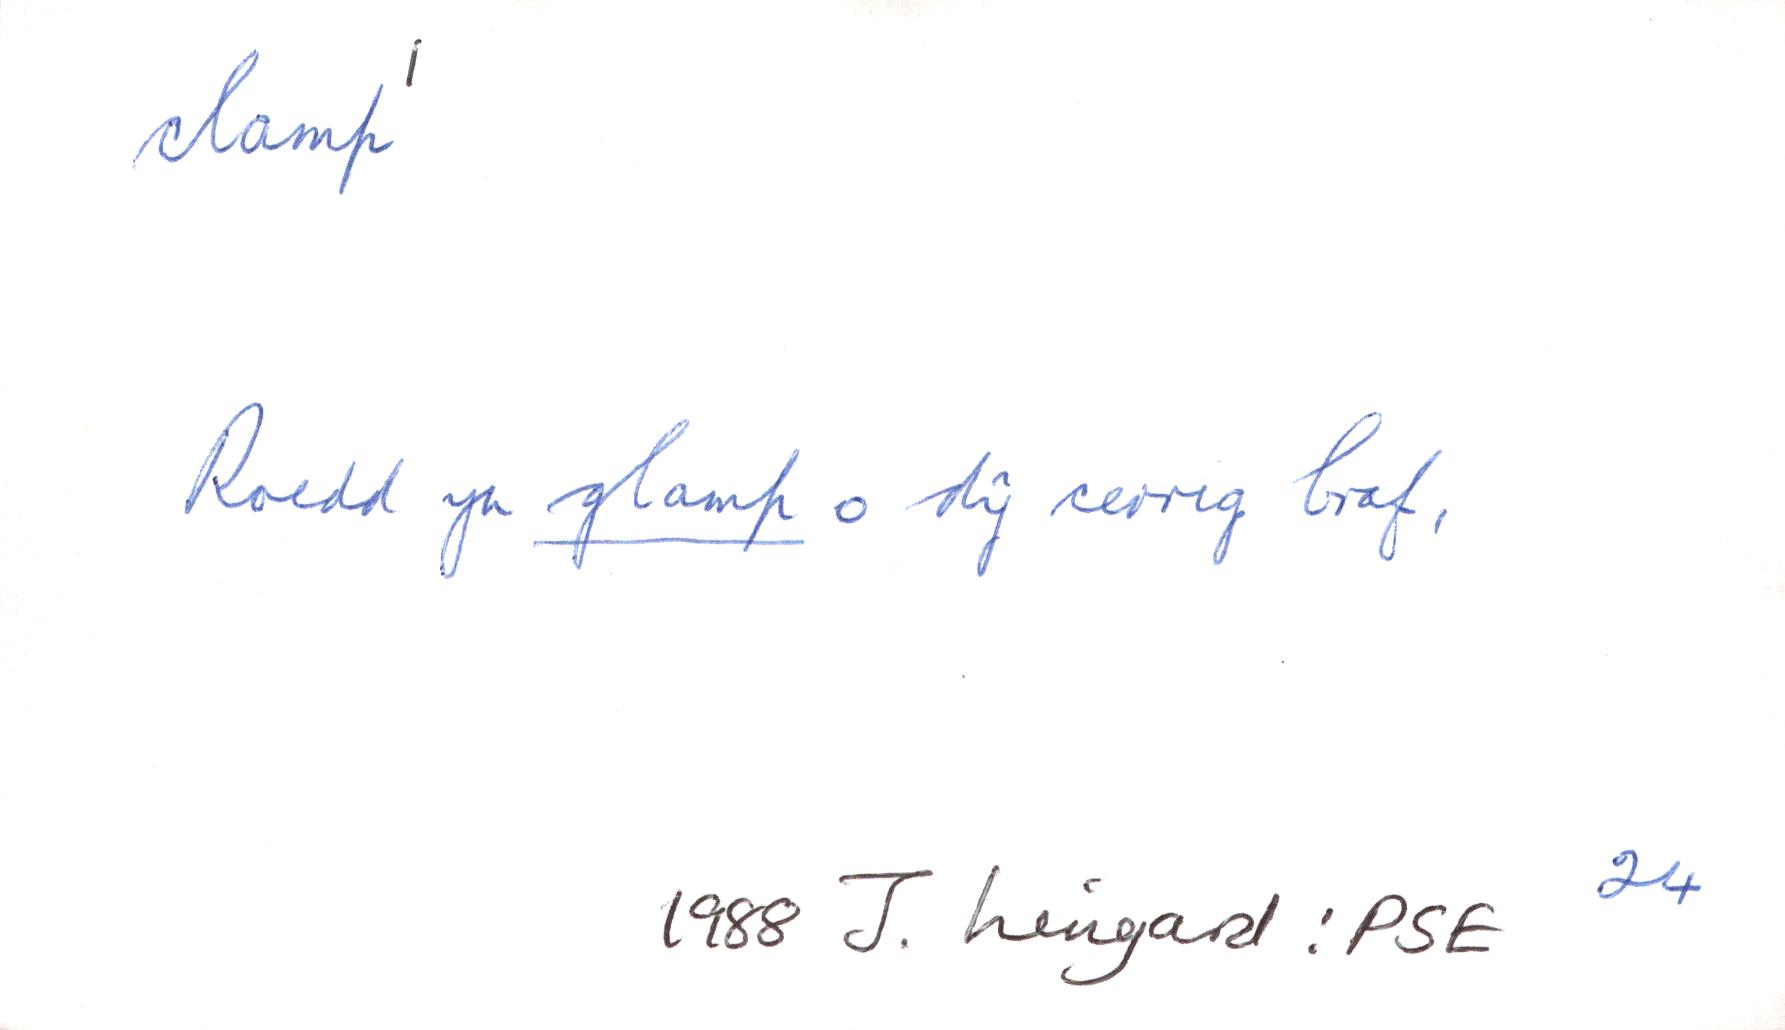 clamp¹
Roedd yn glamp o dŷ cerrig braf,
24
1988 J. Lingard : PSE